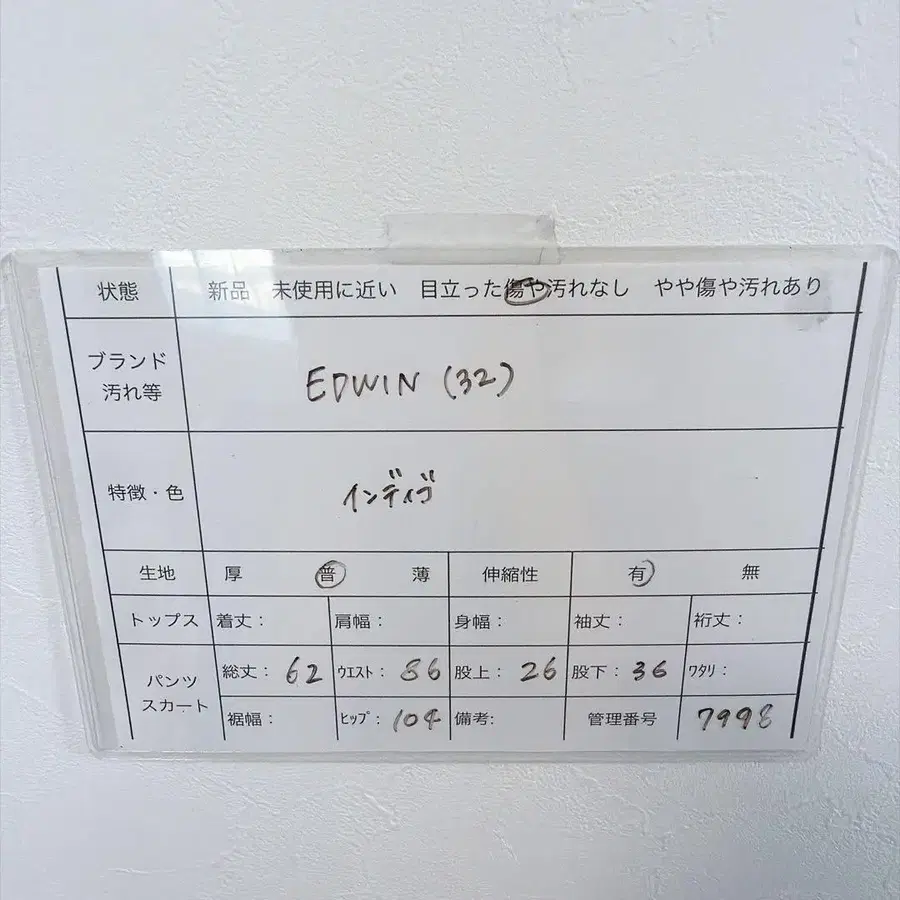 状態 新品 未使用に近い 目立った傷や汚れなし やや傷や汚れあり
ブランド
汚れ等
EDWIN (32)
特徴・色 インディゴ
生地 厚 普 薄 伸縮性 有 無
トップス 着丈： 肩幅： 身幅： 袖丈： 裄丈：
パンツ
スカート
総丈： 62 ウエスト： 86 股上： 26 股下： 36 ワタリ：
裾幅： ヒップ： 104 備考: 管理番号 7998